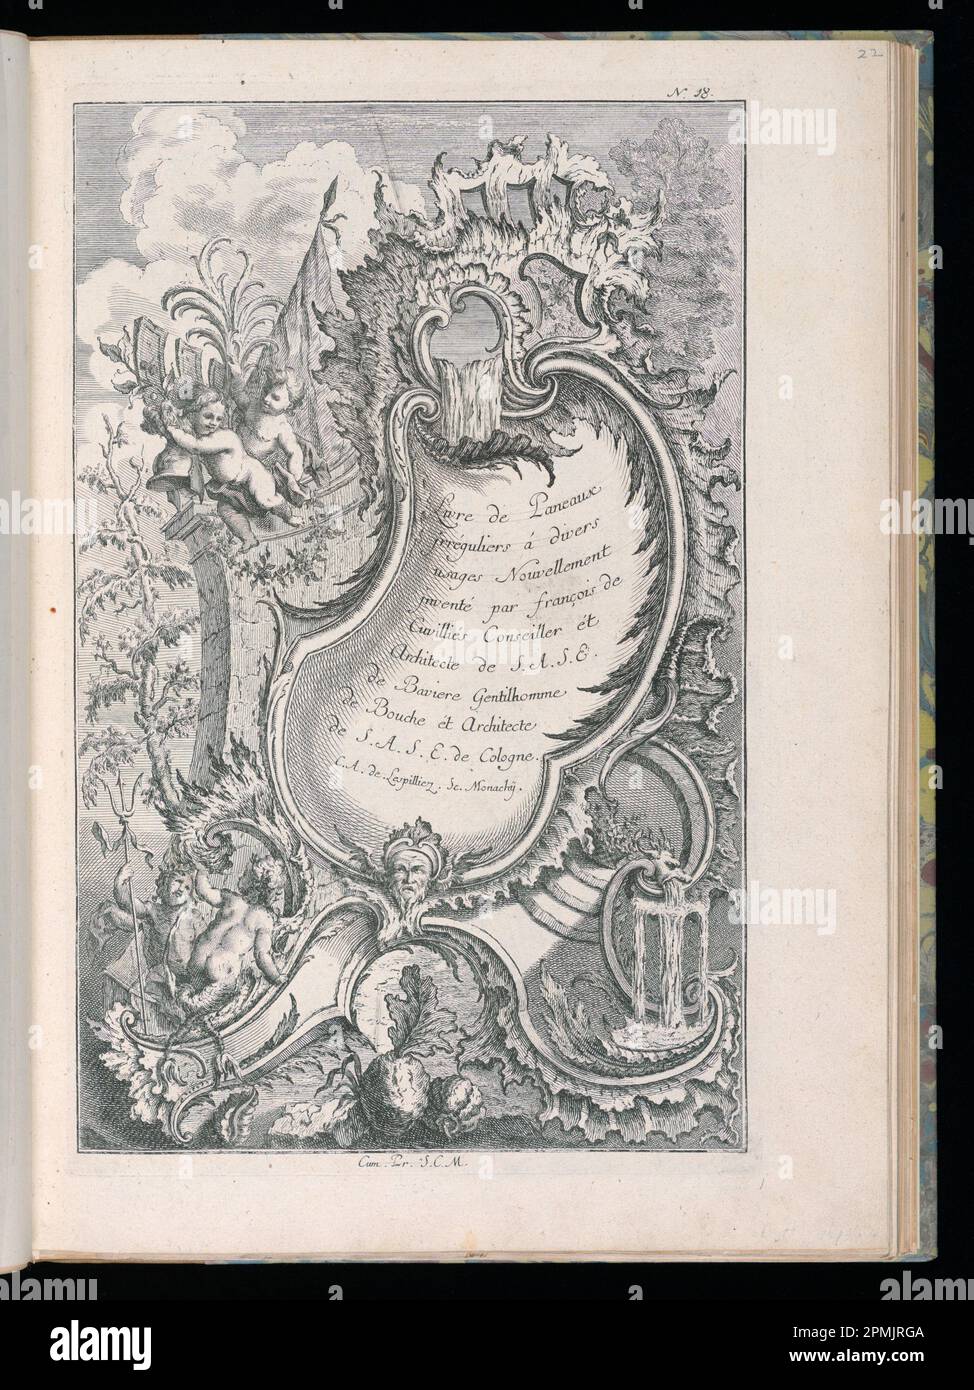 22
N. 18.
Livre de Paneaux
jrréguliers á divers
usages Nouvellement
jnventé par françois de
Cuvilliés Conseiller ét
Architecte de S.A.S.E.
de Baviere Gentilhomme
de Bouche ét Architecte
de S.A.S.E. de Cologne.
C.A. de Lespilliez. Sc. Monachÿ.
Cum. Pr. S.C.M.
alamy
Image ID: 2PMJRGA
www.alamy.com